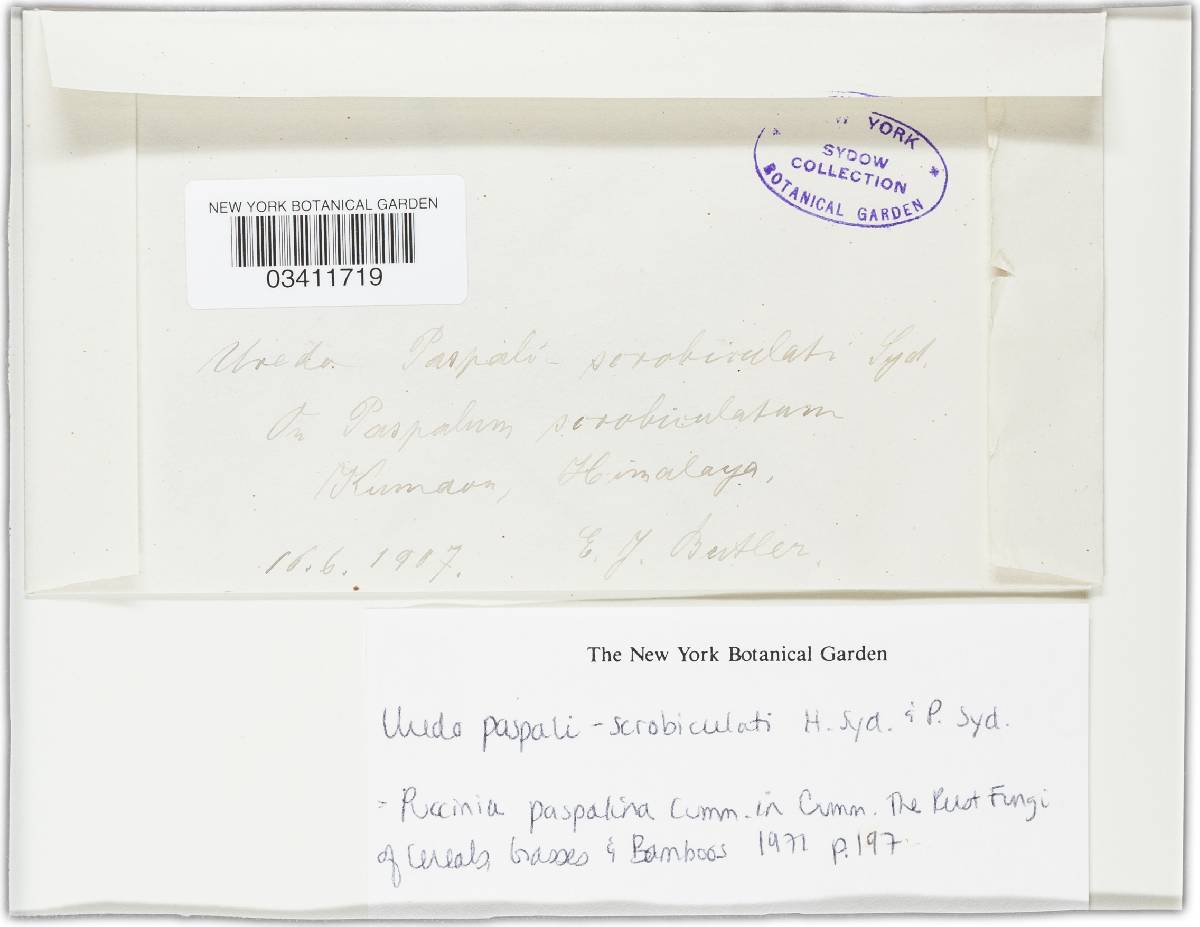 YORK
SYDOW
COLLECTION
BOTANICAL GARDEN
NEW YORK BOTANICAL GARDEN
03411719
Uredo Paspali-scrobiculati Syd.
On Paspalum scrobiculatum
Kumaon, Himalaya,
16.6.1907. E. J. Butler.
The New York Botanical Garden
Uredo paspali-scrobiculati H. Syd. & P. Syd.
= Puccinia paspalina Cumm. in Cumm. The Rust Fungi
of Cereals, Grasses & Bamboos 1971 p.197